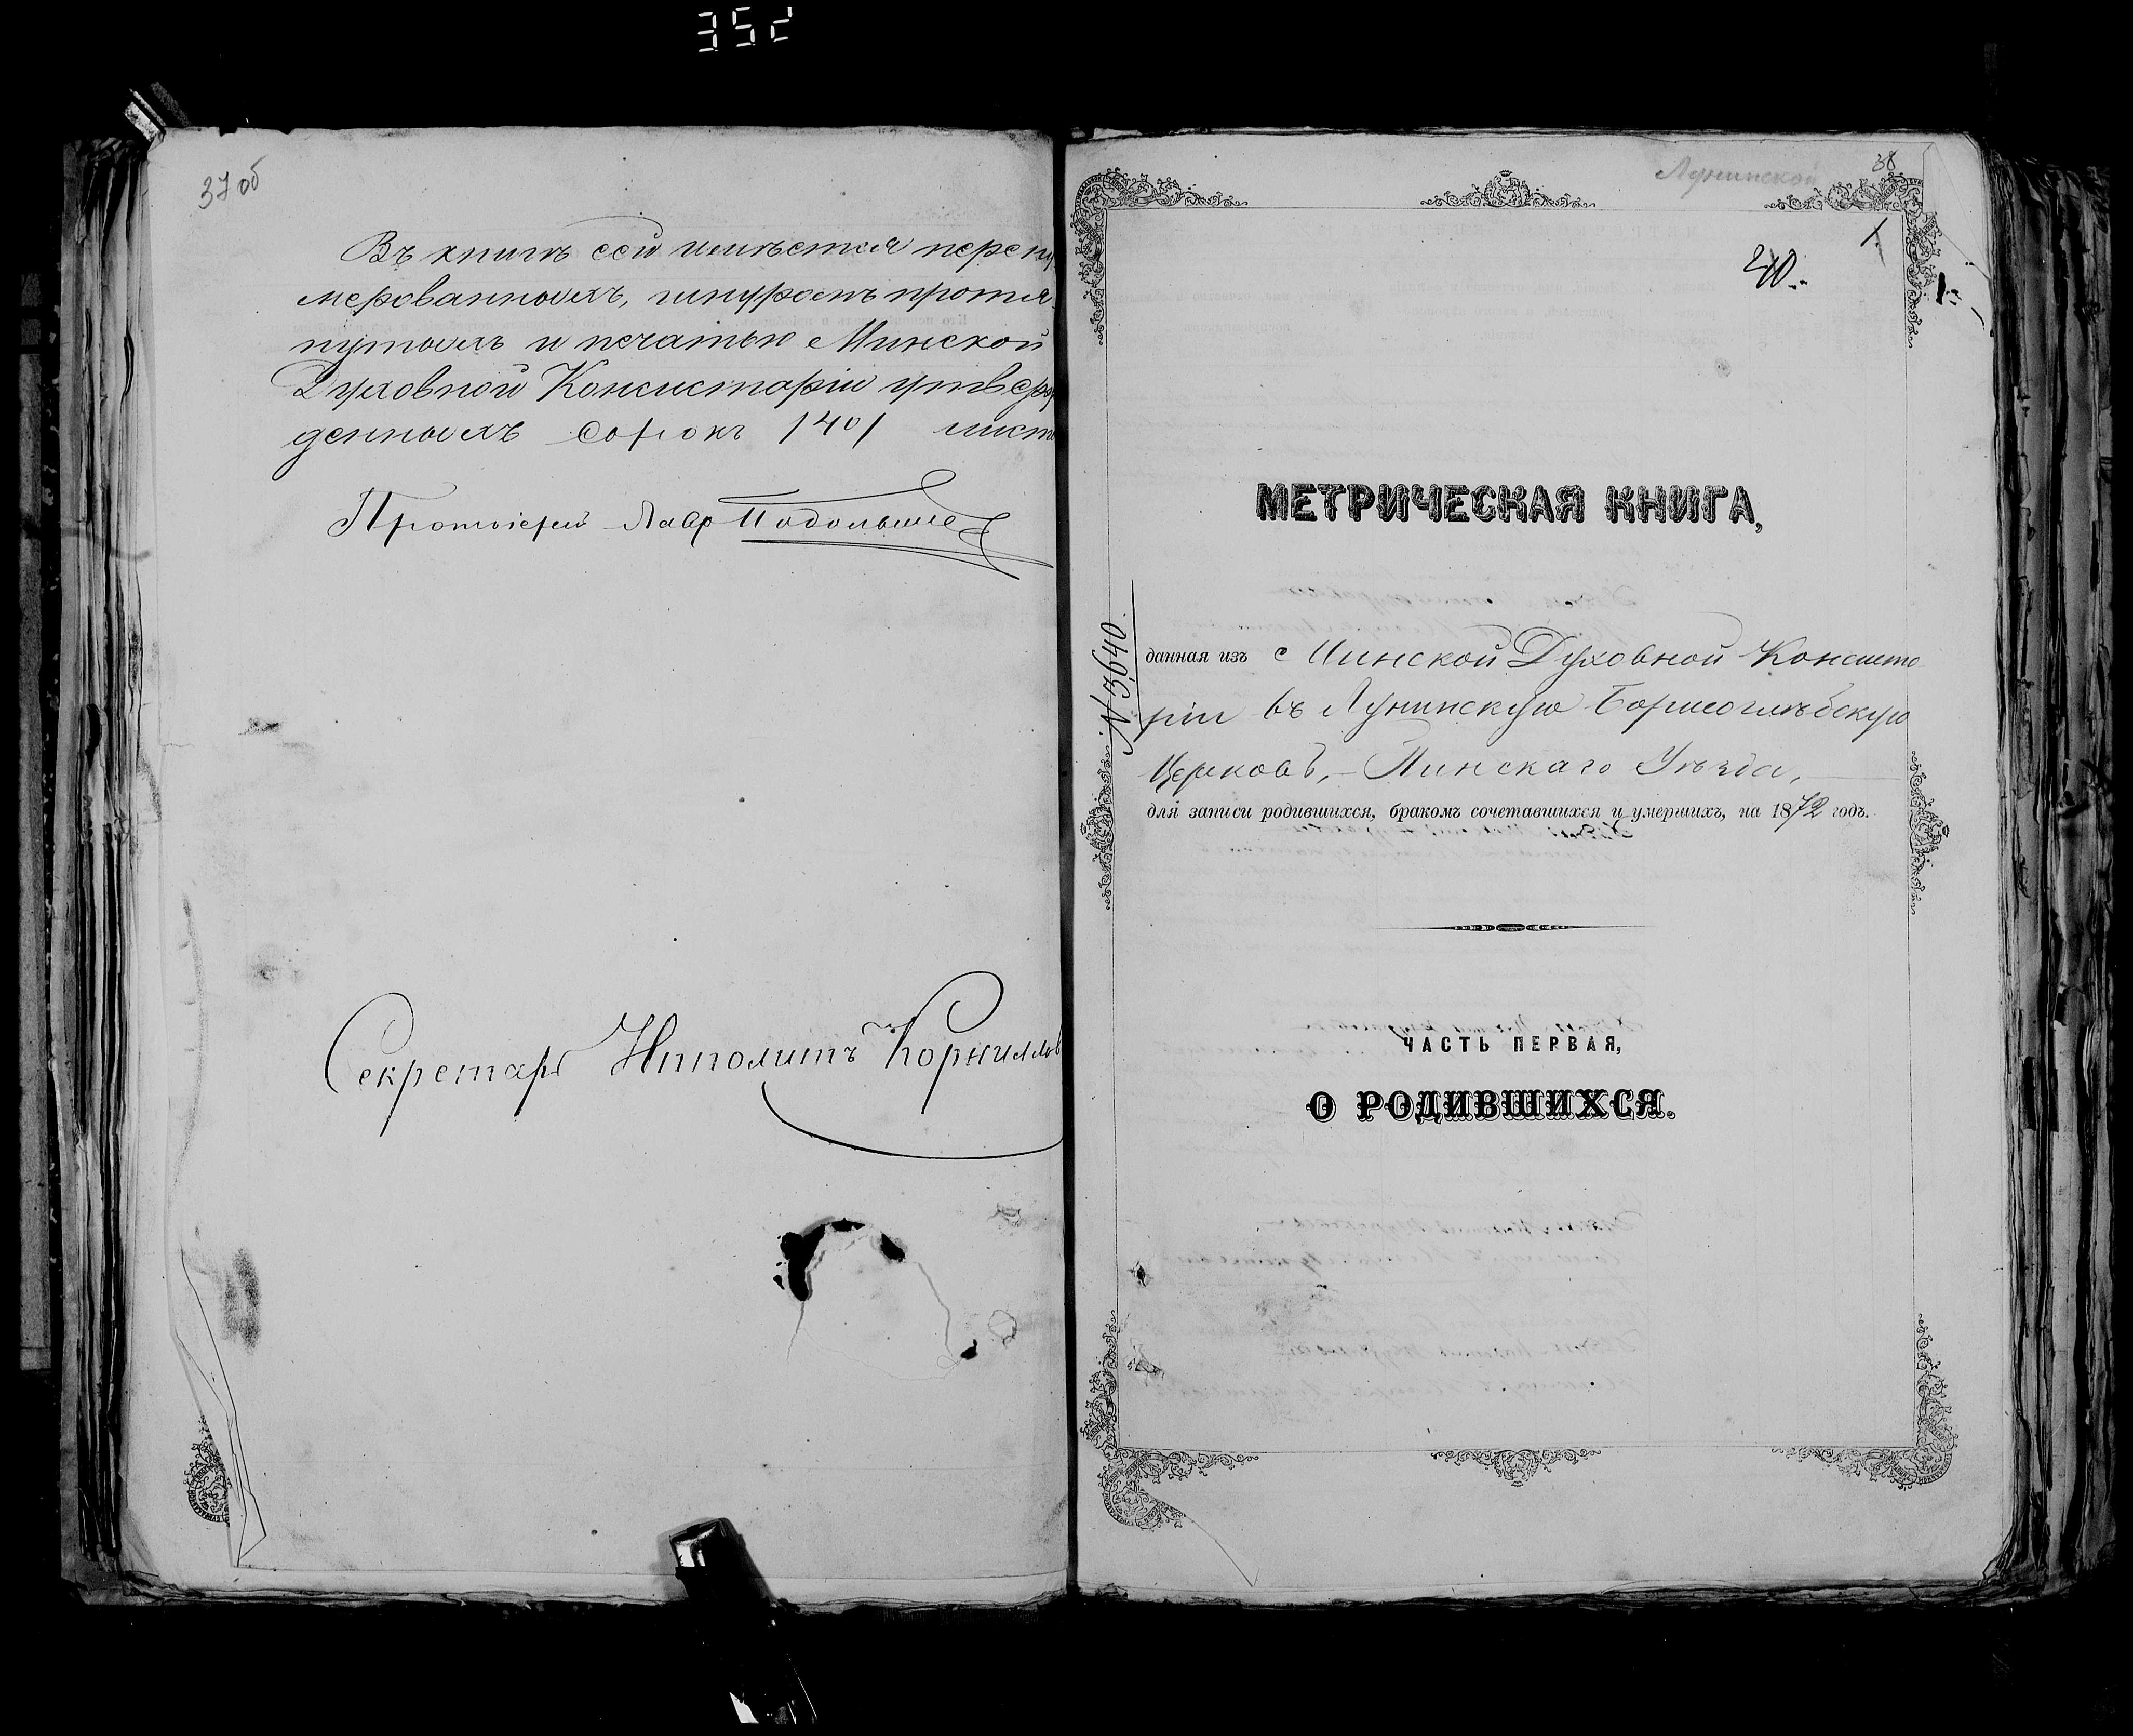 352
37 об
Въ книгѣ сей имѣется перену
мерованныхъ, шнуромъ протя-
нутыхъ и печатью Минской
Духовной Консисторіи утверж
денныхъ сорокъ /40/ листо
Протоіерей Лавр
Секретарь Ипполитъ Корнилов
Лунинской
38
1
40.
1.
МЕТРИЧЕСКАЯ КНИГА,
№ 3,640.
данная изъ Минской Духовной Консисто
ріи въ Лунинскую Борисоглѣбскую
Церковь, – Пинскаго Уѣзда, –
для записи родившихся, бракомъ сочетавшихся и умершихъ, на 1872 годъ.
ЧАСТЬ ПЕРВАЯ,
О РОДИВШИХСЯ.